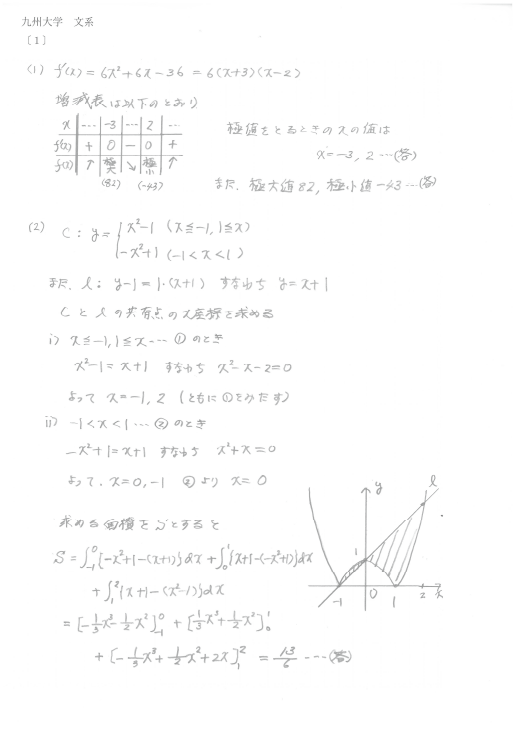 九州大学 文系
[1]
(1) f'(x) = 6x²+6x-36 = 6(x+3)(x-2)
増減表は以下のとおり
x … -3 … 2 …
f'(x) + 0 - 0 +
f(x) ↗ 極大 ↘ 極小 ↗
(82) (-43)
極値をとるときのxの値は
x=-3, 2 …(答)
また, 極大値82, 極小値-43 …(答)
(2) C : y = { x²-1 (x≦-1, 1≦x)
-x²+1 (-1<x<1)
また, l : y-1=1·(x+1) すなわち y=x+1
Cとlの共有点のx座標を求める
i) x≦-1, 1≦x … ① のとき
x²-1=x+1 すなわち x²-x-2=0
よって x=-1, 2 (ともに①をみたす)
ii) -1<x<1 … ② のとき
-x²+1=x+1 すなわち x²+x=0
よって, x=0, -1 ②より x=0
求める面積をSとすると
S=∫₋₁⁰{-x²+1-(x+1)}dx+∫₀¹{x+1-(-x²+1)}dx
+∫₁²{x+1-(x²-1)}dx
=[-1/3x³-1/2x²]₋₁⁰+[1/3x³+1/2x²]₀¹
+[-1/3x³+1/2x²+2x]₁² = 13/6 …(答)
y
l
1
-1 0 1 2 x